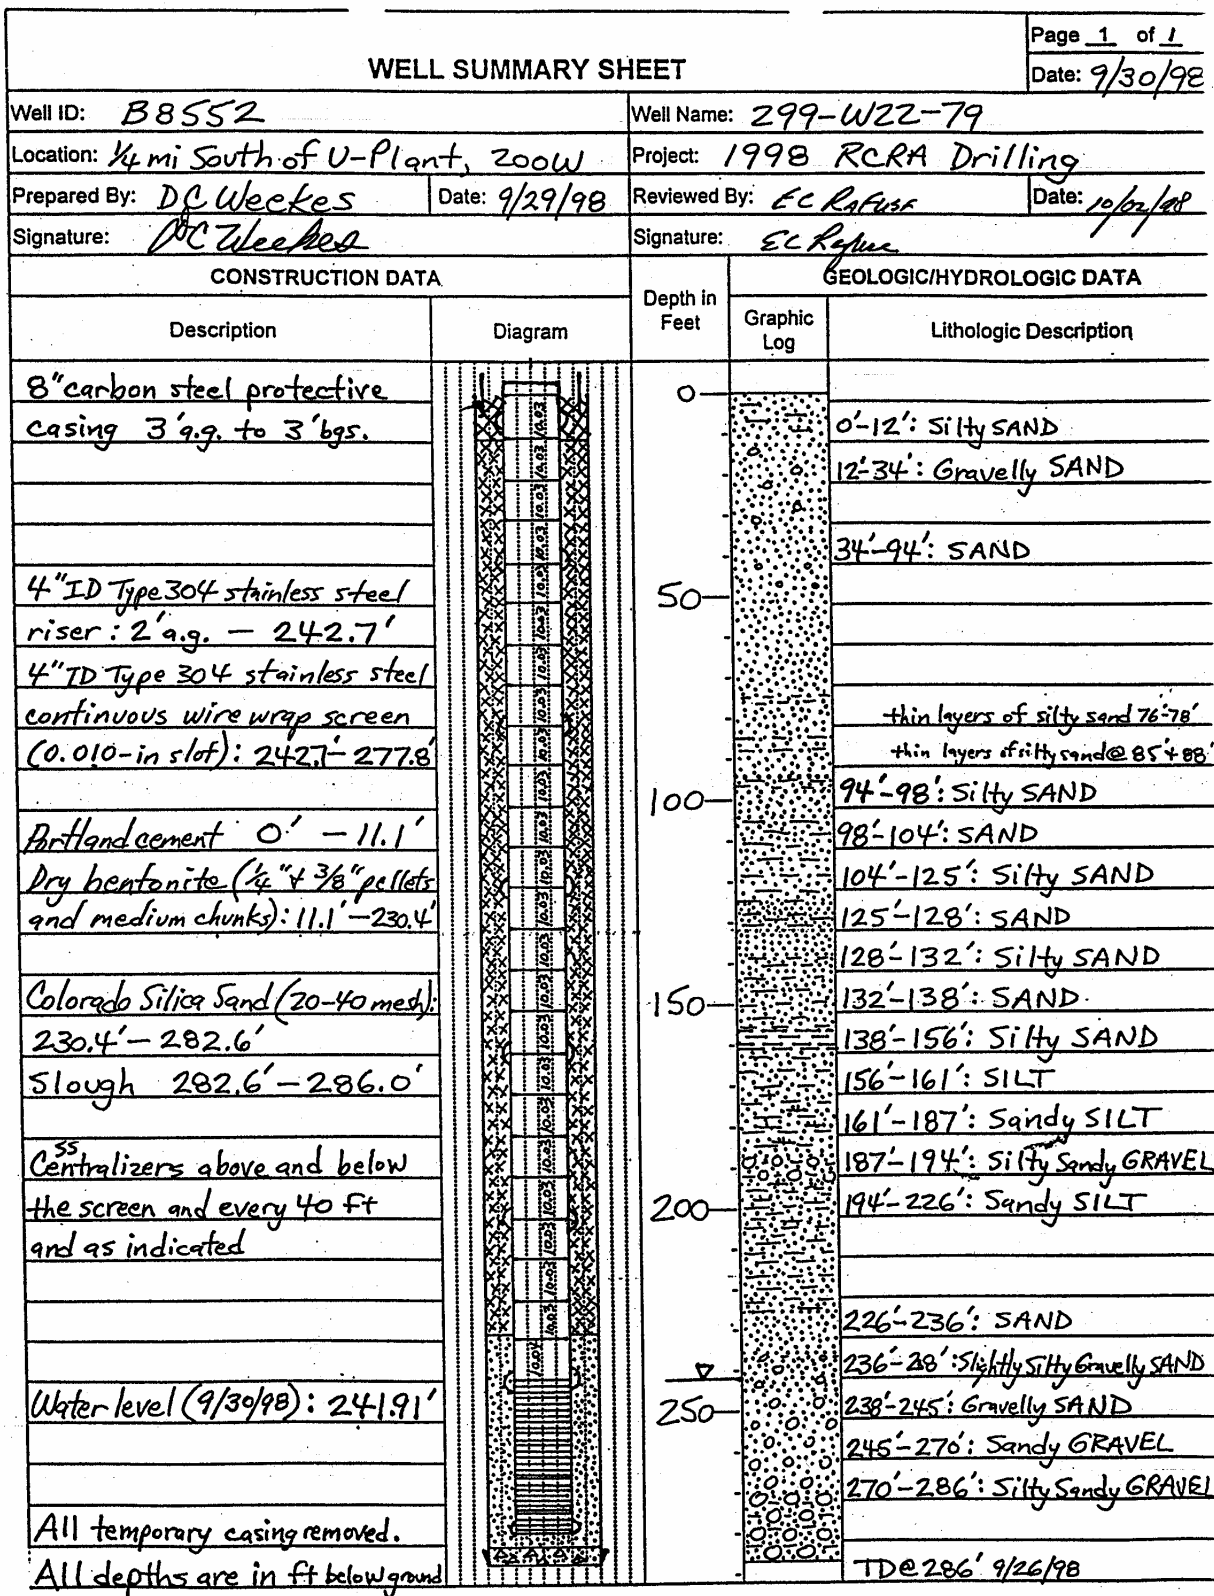 Page 1 of 1
WELL SUMMARY SHEET
Date: 9/30/98
Well ID: B8552
Well Name: 299-W22-79
Location: 1/4 mi South of U-Plant, 200W
Project: 1998 RCRA Drilling
Prepared By: DC Weekes
Date: 9/29/98
Reviewed By: EC Rafuse
Date: 10/02/98
Signature: DC Weekes
Signature: EC Rafuse
CONSTRUCTION DATA
Depth in Feet
GEOLOGIC/HYDROLOGIC DATA
Description
Diagram
Graphic Log
Lithologic Description
8" carbon steel protective
casing 3' a.g. to 3' bgs.
4" ID Type 304 stainless steel
riser: 2' a.g. — 242.7'
4" ID Type 304 stainless steel
continuous wire wrap screen
(0.010-in slot): 242.7'-277.8'
Portland cement 0' - 11.1'
Dry bentonite (1/4" + 3/8" pellets
and medium chunks): 11.1' - 230.4'
Colorado Silica Sand (20-40 mesh):
230.4' - 282.6'
Slough 282.6' - 286.0'
SS
Centralizers above and below
the screen and every 40 ft
and as indicated
Water level (9/30/98): 241.91'
All temporary casing removed.
All depths are in ft below ground
10.03 10.03 10.03 10.03 10.03 10.03 10.03 10.03 10.03 10.03 10.03 10.03 10.03 10.03 10.03 10.03 10.03 10.03 10.03 10.03 10.03 10.03 10.03
10.04
0
50
100
150
200
250
0'-12': Silty SAND
12'-34': Gravelly SAND
34'-94': SAND
thin layers of silty sand 76'-78'
thin layers of silty sand @ 85' + 88'
94'-98': Silty SAND
98'-104': SAND
104'-125': Silty SAND
125'-128': SAND
128'-132': Silty SAND
132'-138': SAND
138'-156': Silty SAND
156'-161': SILT
161'-187': Sandy SILT
187'-194': Silty Sandy GRAVEL
194'-226': Sandy SILT
226'-236': SAND
236'-28': Slightly Silty Gravelly SAND
238'-245': Gravelly SAND
245'-270': Sandy GRAVEL
270'-286': Silty Sandy GRAVEL
TD @ 286' 9/26/98